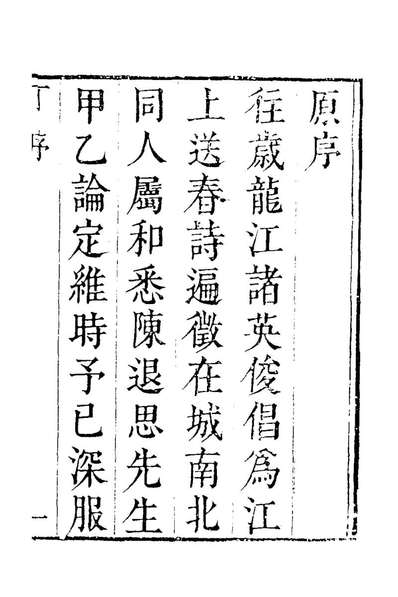 原序
往歲龍江諸英俊倡為江
上送春詩遍徵在城南北
同人屬和悉陳退思先生
甲乙論定維時予已深服
丁序
一